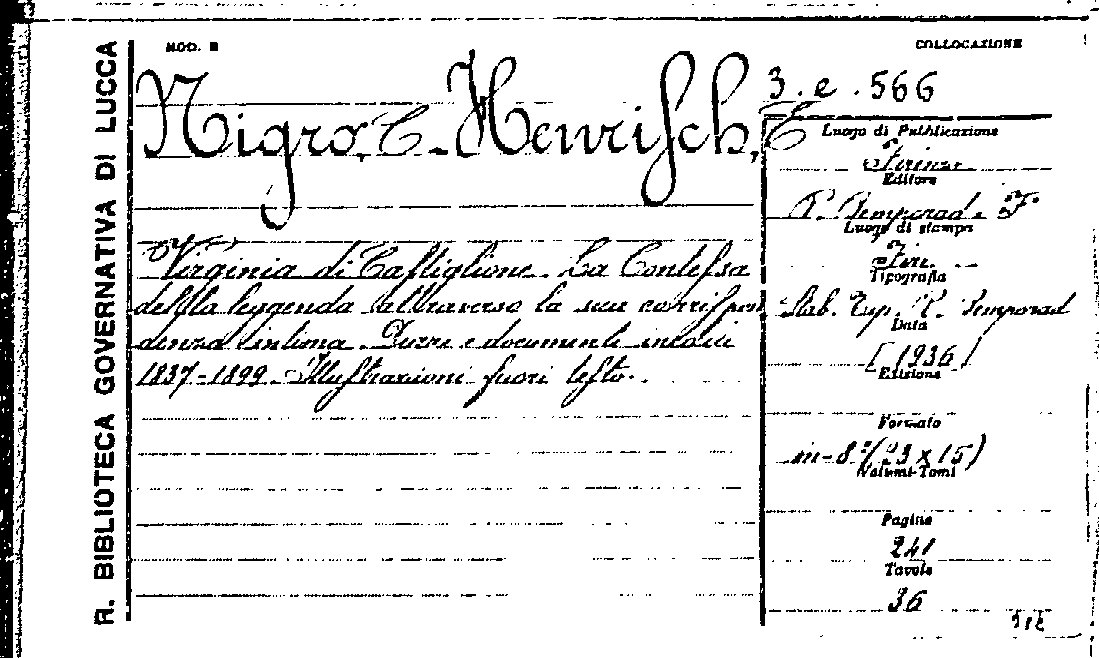 R. BIBLIOTECA GOVERNATIVA DI LUCCA
MOD. B
COLLOCAZIONE
3. e. 566
Nigro, C. - Henrisch, E
Virginia di Castiglione. La Contessa
della leggenda attraverso la sua corrispon
denza intima. e documenti inediti
1837-1899. Illustrazioni fuori testo.
Luogo di Pubblicazione
Firenze
Editore
R. Bemporad. F.
Luogo di stampa
Fire.
Tipografia
Stab. Tip. R. Bemporad
Data
[1936]
Edizione
Formato
in-8° (23 x 15)
Volumi-Tomi
Pagine
241
Tavole
36